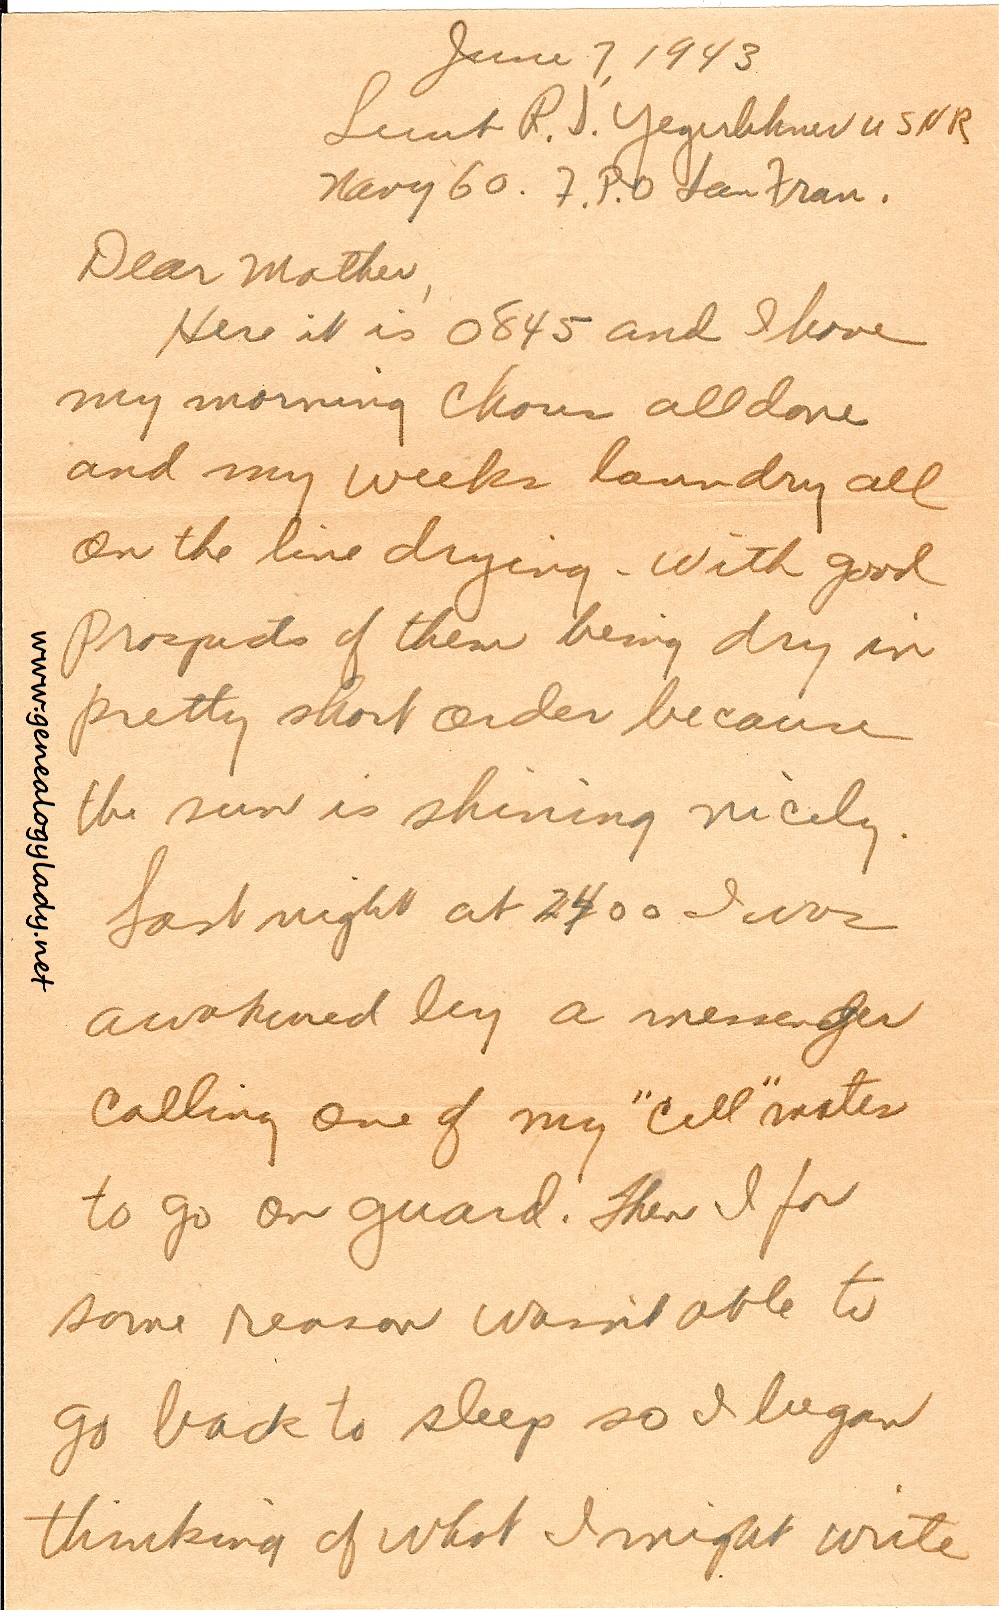 June 7, 1943
Lieut R. I. Yegerlehner USNR
Navy 60. F.P.O San Fran.
Dear Mother,
Here it is 0845 and I have
my morning chores all done
and my weeks laundry all
on the line drying - with good
prospects of them being dry in
pretty short order because
the sun is shining nicely.
Last night at 2400 I was
awakened by a messenger
calling one of my "cell" mates
to go on guard. Then I for
some reason wasn't able to
go back to sleep so I began
thinking of what I might write
www.genealogylady.net